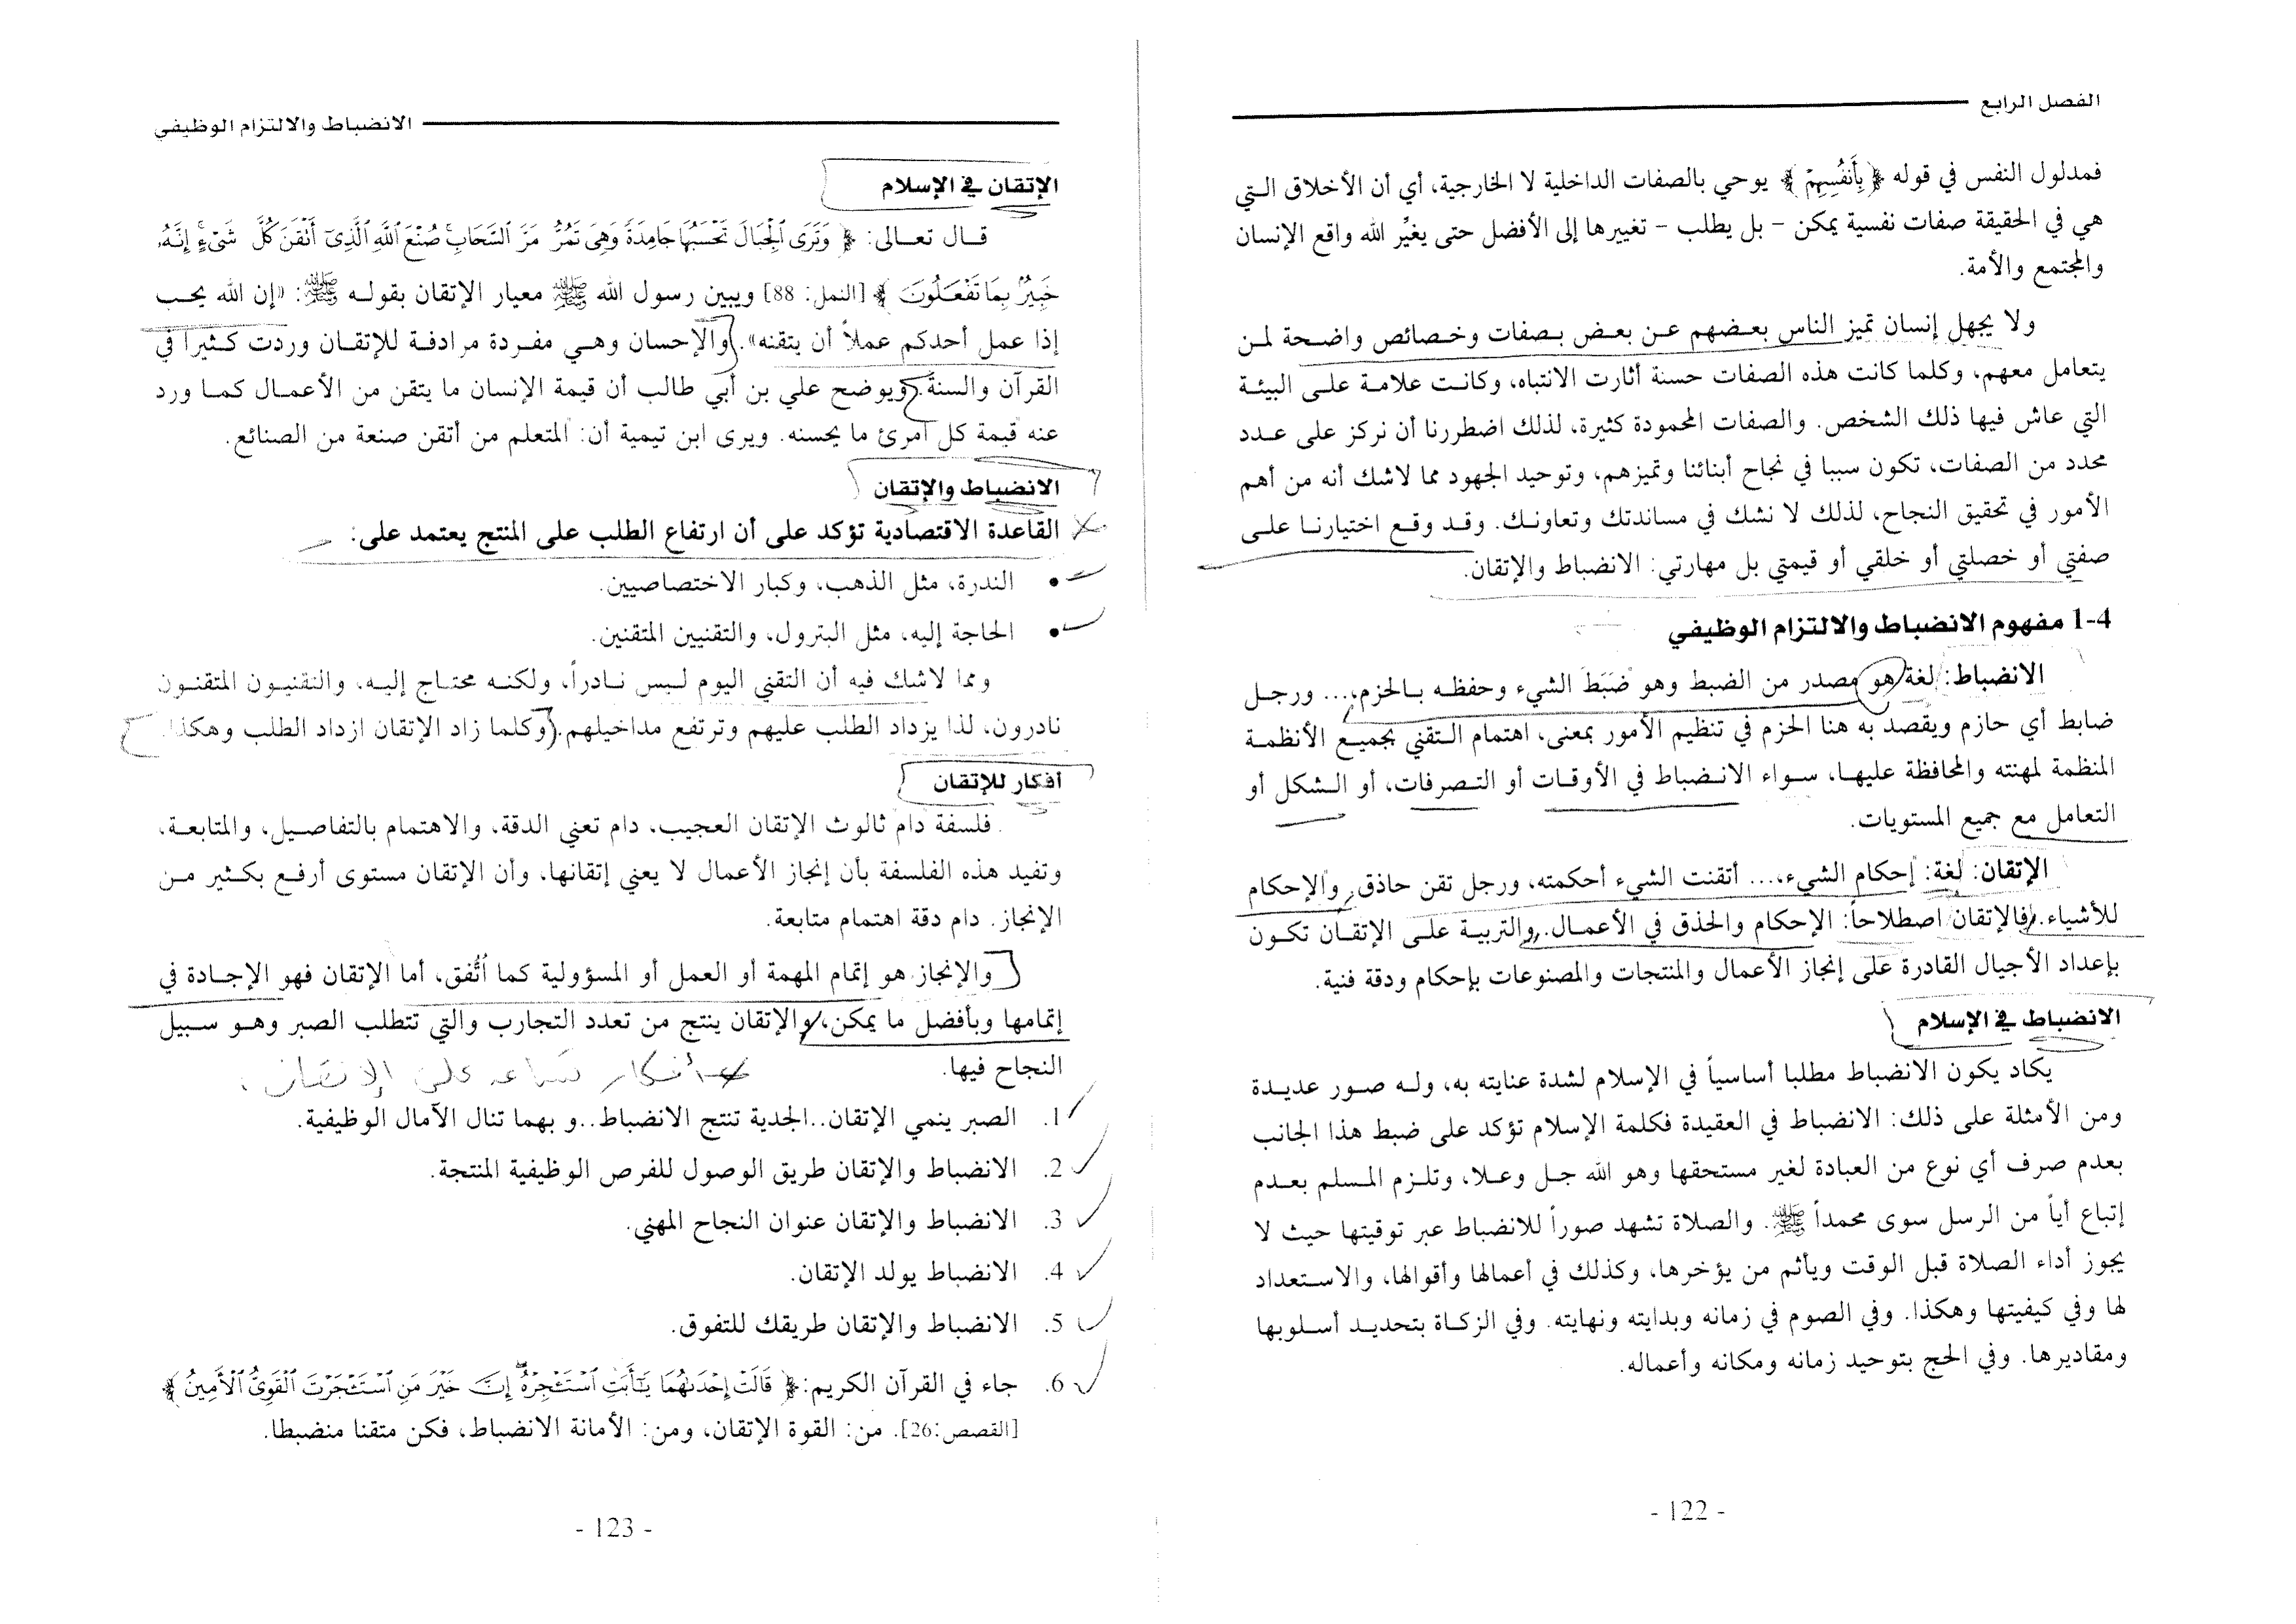 الفصل الرابع
فمدلول النفس في قوله ﴿ بِأَنفُسِهِمْ ﴾ يوحي بالصفات الداخلية لا الخارجية، أي أن الأخلاق التي
هي في الحقيقة صفات نفسية يمكن – بل يطلب – تغييرها إلى الأفضل حتى يغيِّر الله واقع الإنسان
والمجتمع والأمة.
ولا يجهل إنسان تميز الناس بعضهم عن بعض بصفات وخصائص واضحة لمن
يتعامل معهم، وكلما كانت هذه الصفات حسنة أثارت الانتباه، وكانت علامة على البيئة
التي عاش فيها ذلك الشخص. والصفات المحمودة كثيرة، لذلك اضطررنا أن نركز على عدد
محدد من الصفات، تكون سببا في نجاح أبنائنا وتميزهم، وتوحيد الجهود مما لاشك أنه من أهم
الأمور في تحقيق النجاح، لذلك لا نشك في مساندتك وتعاونك. وقد وقع اختيارنا على
صفتي أو خصلتي أو خلقي أو قيمتي بل مهارتي: الانضباط والإتقان.
1-4 مفهوم الانضباط والالتزام الوظيفي
الانضباط: لغة هو مصدر من الضبط وهو ضَبَطَ الشيء وحفظه بالحزم،... ورجل
ضابط أي حازم ويقصد به هنا الحزم في تنظيم الأمور بمعنى، اهتمام التقني بجميع الأنظمة
المنظمة لمهنته والمحافظة عليها، سواء الانضباط في الأوقات أو التصرفات، أو الشكل أو
التعامل مع جميع المستويات.
الإتقان: لغة: إحكام الشيء،... أتقنت الشيء أحكمته، ورجل تقن حاذق، والإحكام
للأشياء. فالإتقان اصطلاحاً: الإحكام والحذق في الأعمال. والتربية على الإتقان تكون
بإعداد الأجيال القادرة على إنجاز الأعمال والمنتجات والمصنوعات بإحكام ودقة فنية.
الانضباط في الإسلام
يكاد يكون الانضباط مطلبا أساسياً في الإسلام لشدة عنايته به، وله صور عديدة
ومن الأمثلة على ذلك: الانضباط في العقيدة فكلمة الإسلام تؤكد على ضبط هذا الجانب
بعدم صرف أي نوع من العبادة لغير مستحقها وهو الله جل وعلا، وتلزم المسلم بعدم
إتباع أياً من الرسل سوى محمداً ﷺ. والصلاة تشهد صوراً للانضباط عبر توقيتها حيث لا
يجوز أداء الصلاة قبل الوقت ويأثم من يؤخرها، وكذلك في أعمالها وأقوالها، والاستعداد
لها وفي كيفيتها وهكذا. وفي الصوم في زمانه وبدايته ونهايته. وفي الزكاة بتحديد أسلوبها
ومقاديرها. وفي الحج بتوحيد زمانه ومكانه وأعماله.
- 122 -
الانضباط والالتزام الوظيفي
الإتقان في الإسلام
قال تعالى: ﴿ وَتَرَى ٱلْجِبَالَ تَحْسَبُهَا جَامِدَةً وَهِىَ تَمُرُّ مَرَّ ٱلسَّحَابِ ۚ صُنْعَ ٱللَّهِ ٱلَّذِىٓ أَتْقَنَ كُلَّ شَىْءٍ ۚ إِنَّهُۥ
خَبِيرٌۢ بِمَا تَفْعَلُونَ ﴾ [النمل: 88] ويبين رسول الله ﷺ معيار الإتقان بقوله ﷺ: «إن الله يحب
إذا عمل أحدكم عملاً أن يتقنه». والإحسان وهي مفردة مرادفة للإتقان وردت كثيرا في
القرآن والسنة. ويوضح علي بن أبي طالب أن قيمة الإنسان ما يتقن من الأعمال كما ورد
عنه قيمة كل امرئ ما يحسنه. ويرى ابن تيمية أن: المتعلم من أتقن صنعة من الصنائع.
الانضباط والإتقان
القاعدة الاقتصادية تؤكد على أن ارتفاع الطلب على المنتج يعتمد على:
• الندرة، مثل الذهب، وكبار الاختصاصيين.
• الحاجة إليه، مثل البترول، والتقنيين المتقنين.
ومما لاشك فيه أن التقني اليوم ليس نادراً، ولكنه محتاج إليه، والتقنيون المتقنون
نادرون، لذا يزداد الطلب عليهم وترتفع مداخيلهم. وكلما زاد الإتقان ازداد الطلب وهكذا.
أفكار للإتقان
فلسفة دام ثالوث الإتقان العجيب، دام تعني الدقة، والاهتمام بالتفاصيل، والمتابعة،
وتفيد هذه الفلسفة بأن إنجاز الأعمال لا يعني إتقانها، وأن الإتقان مستوى أرفع بكثير من
الإنجاز. دام دقة اهتمام متابعة.
والإنجاز هو إتمام المهمة أو العمل أو المسؤولية كما اتُّفق، أما الإتقان فهو الإجادة في
إتمامها وبأفضل ما يمكن، والإتقان ينتج من تعدد التجارب والتي تتطلب الصبر وهو سبيل
النجاح فيها.
أفكار تساعد على الإتقان:
1. الصبر ينمي الإتقان..الجدية تنتج الانضباط..و بهما تنال الآمال الوظيفية.
2. الانضباط والإتقان طريق الوصول للفرص الوظيفية المنتجة.
3. الانضباط والإتقان عنوان النجاح المهني.
4. الانضباط يولد الإتقان.
5. الانضباط والإتقان طريقك للتفوق.
6. جاء في القرآن الكريم: ﴿ قَالَتْ إِحْدَىٰهُمَا يَٰٓأَبَتِ ٱسْتَـْٔجِرْهُ ۖ إِنَّ خَيْرَ مَنِ ٱسْتَـْٔجَرْتَ ٱلْقَوِىُّ ٱلْأَمِينُ ﴾
[القصص:26]. من: القوة الإتقان، ومن: الأمانة الانضباط، فكن متقنا منضبطا.
- 123 -